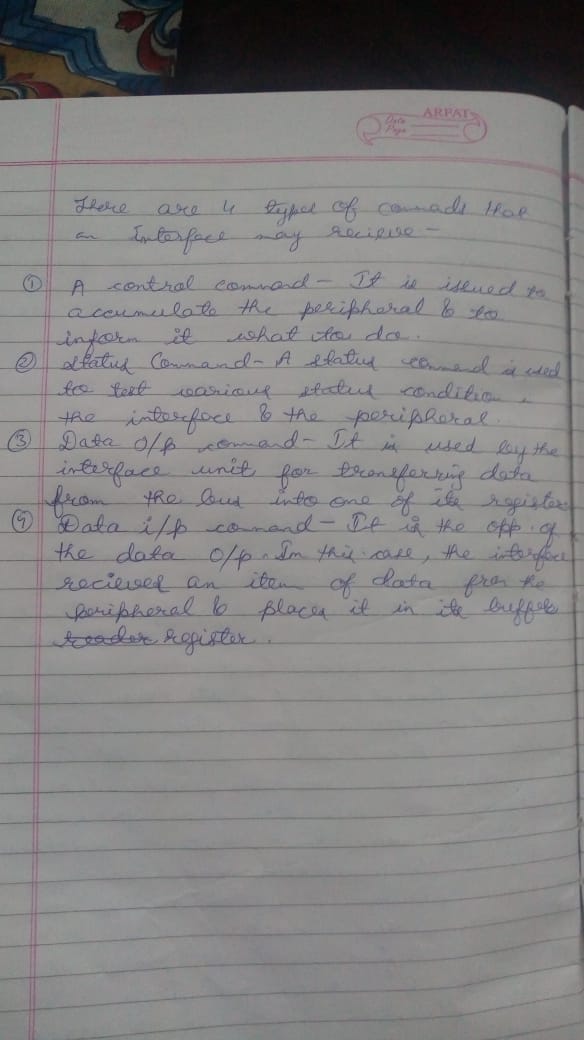 ARPAT
Date
Page
There are 4 types of commads that
an Interface may recieve -
① A control command - It is issued to
accumulate the peripheral & to
inform it what to do.
② Status Command - A status command is used
to test various status condition
the interface & the peripheral.
③ Data O/p command - It is used by the
interface unit for transferring data
from the bus into one of its register
④ Data i/p command - It is the opp. of
the data O/p. In this case, the interface
recieved an item of data from the
peripheral & places it in its buffer
reader register.